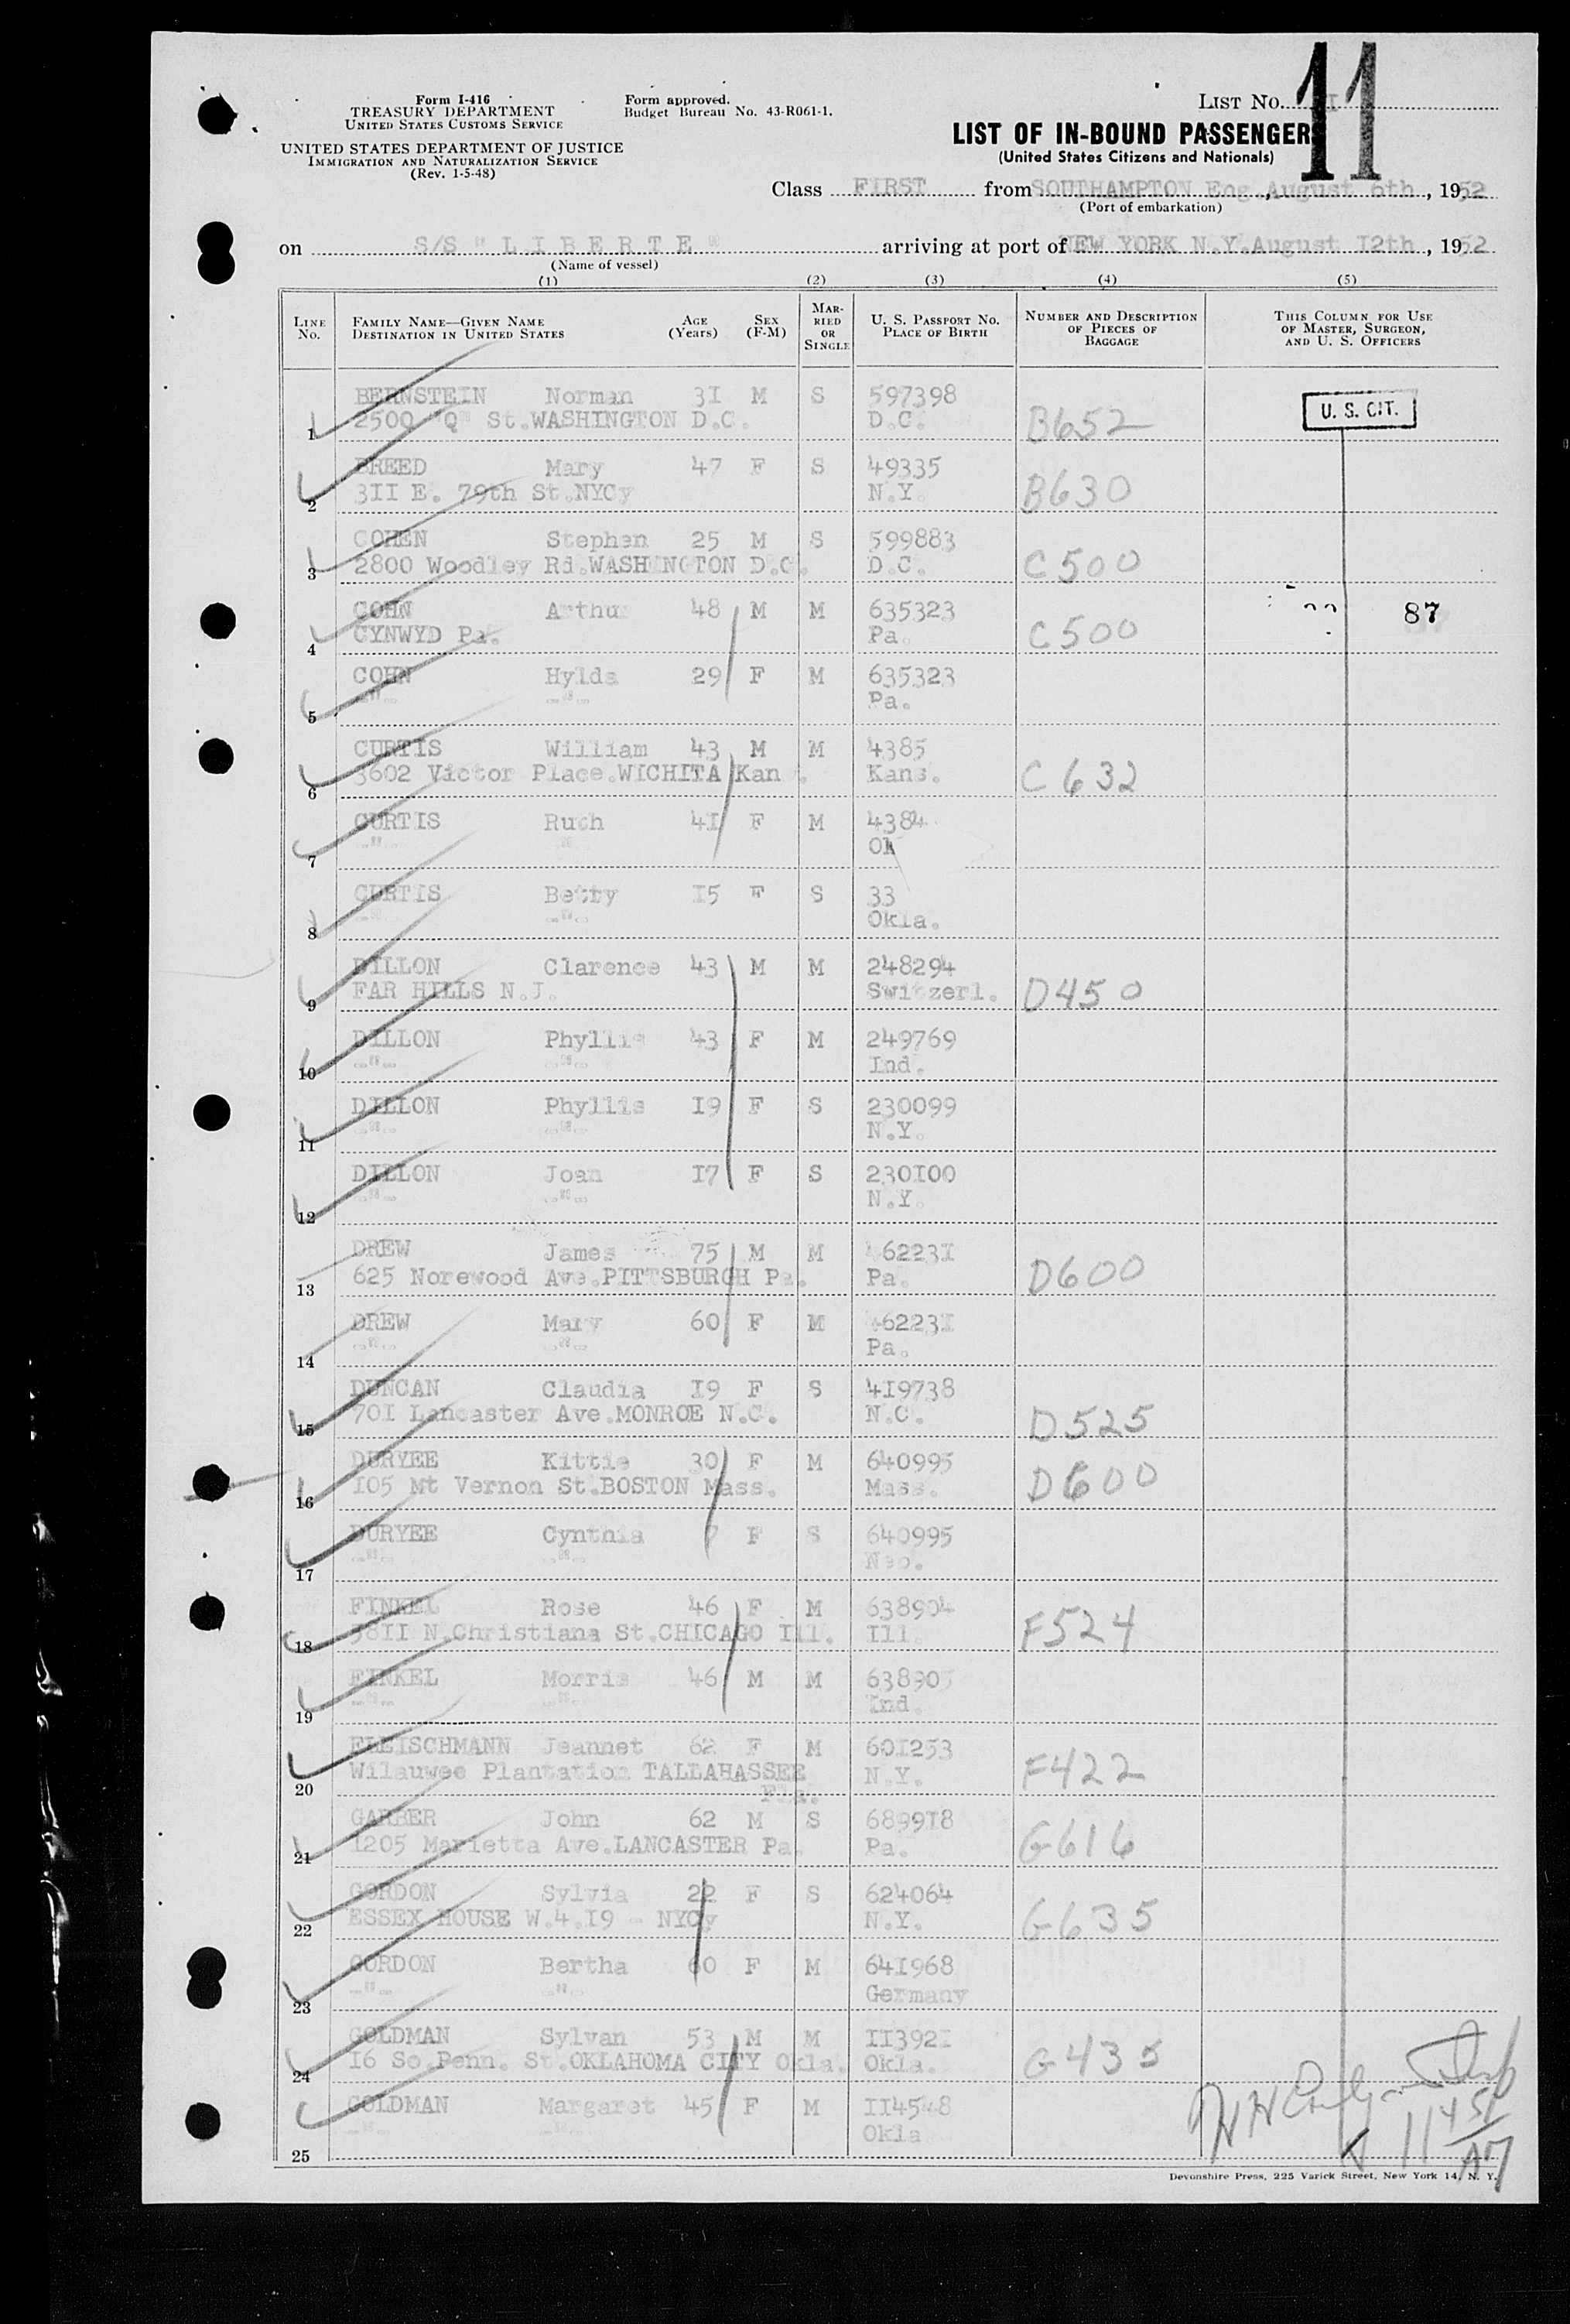 Form I-416
TREASURY DEPARTMENT
UNITED STATES CUSTOMS SERVICE
UNITED STATES DEPARTMENT OF JUSTICE
IMMIGRATION AND NATURALIZATION SERVICE
(Rev. 1-5-48)
Form approved.
Budget Bureau No. 43-R061-1.
LIST NO. 11
LIST OF IN-BOUND PASSENGER
(United States Citizens and Nationals)
Class FIRST from SOUTHAMPTON Eng., August 6th, 1952
(Port of embarkation)
on S/S "LIBERTE" arriving at port of NEW YORK N.Y. August I2th, 1952
(Name of vessel)
(1) (2) (3) (4) (5)
LINE NO. FAMILY NAME—GIVEN NAME DESTINATION IN UNITED STATES AGE (Years) SEX (F-M) MARRIED OR SINGLE U. S. PASSPORT NO. PLACE OF BIRTH NUMBER AND DESCRIPTION OF PIECES OF BAGGAGE THIS COLUMN FOR USE OF MASTER, SURGEON, AND U. S. OFFICERS
BERNSTEIN Norman 3I M S 597398
1 2500 "Q" St.WASHINGTON D.C. D.C. B652 U. S. CIT.
BREED Mary 47 F S 49335
2 3II E. 79th St.NYCy N.Y. B630
COHEN Stephen 25 M S 599883
3 2800 Woodley Rd.WASHINGTON D.C. D.C. C500
COHN Arthur 48 M M 635323 87
4 CYNWYD Pa. Pa. C500
COHN Hylda 29 F M 635323
5 -"- -"- Pa.
CURTIS William 43 M M 4385
6 3602 Victor Place.WICHITA Kan. Kans. C632
CURTIS Ruth 4I F M 4384
7 -"- " Ok
CURTIS Betty I5 F S 33
8 -"- -"- Okla.
DILLON Clarence 43 M M 248294
9 FAR HILLS N.J. Switzerl. D450
DILLON Phyllis 43 F M 249769
10 -"- -"- Ind.
DILLON Phyllis I9 F S 230099
11 -"- -"- N.Y.
DILLON Joan I7 F S 230I00
12 -"- -"- N.Y.
DREW James 75 M M 6223I
13 625 Norewood Ave.PITTSBURGH Pa. Pa. D600
DREW Mary 60 F M 6223I
14 -"- -"- Pa.
DUNCAN Claudia I9 F S 4I9738
15 70I Lancaster Ave.MONROE N.C. N.C. D525
DURYEE Kittie 30 F M 640995
16 I05 Mt Vernon St.BOSTON Mass. Mass. D600
DURYEE Cynthia 7 F S 640995
17 -"- -"-
FINKEL Rose 46 F M 638904
18 38II N.Christiana St.CHICAGO Ill. Ill. F524
FINKEL Morris 46 M M 638905
19 -"- -"- Ind.
FLEISCHMANN Jeannet 62 F M 60I253
20 Wilauwee Plantation TALLAHASSEE Fla. N.Y. F422
GARBER John 62 M S 6899I8
21 I205 Marietta Ave.LANCASTER Pa. Pa. G616
GORDON Sylvia 22 F S 624064
22 ESSEX HOUSE W.4.I9 - NYCy N.Y. G635
GORDON Bertha 60 F M 64I968
23 -"- -"- Germany
GOLDMAN Sylvan 53 M M II392I
24 I6 So.Penn. St.OKLAHOMA CITY Okla. Okla. G435
GOLDMAN Margaret 45 F M II4548
25 -"- -"- Okla
11 45/AM
Devonshire Press, 225 Varick Street, New York 14, N. Y.